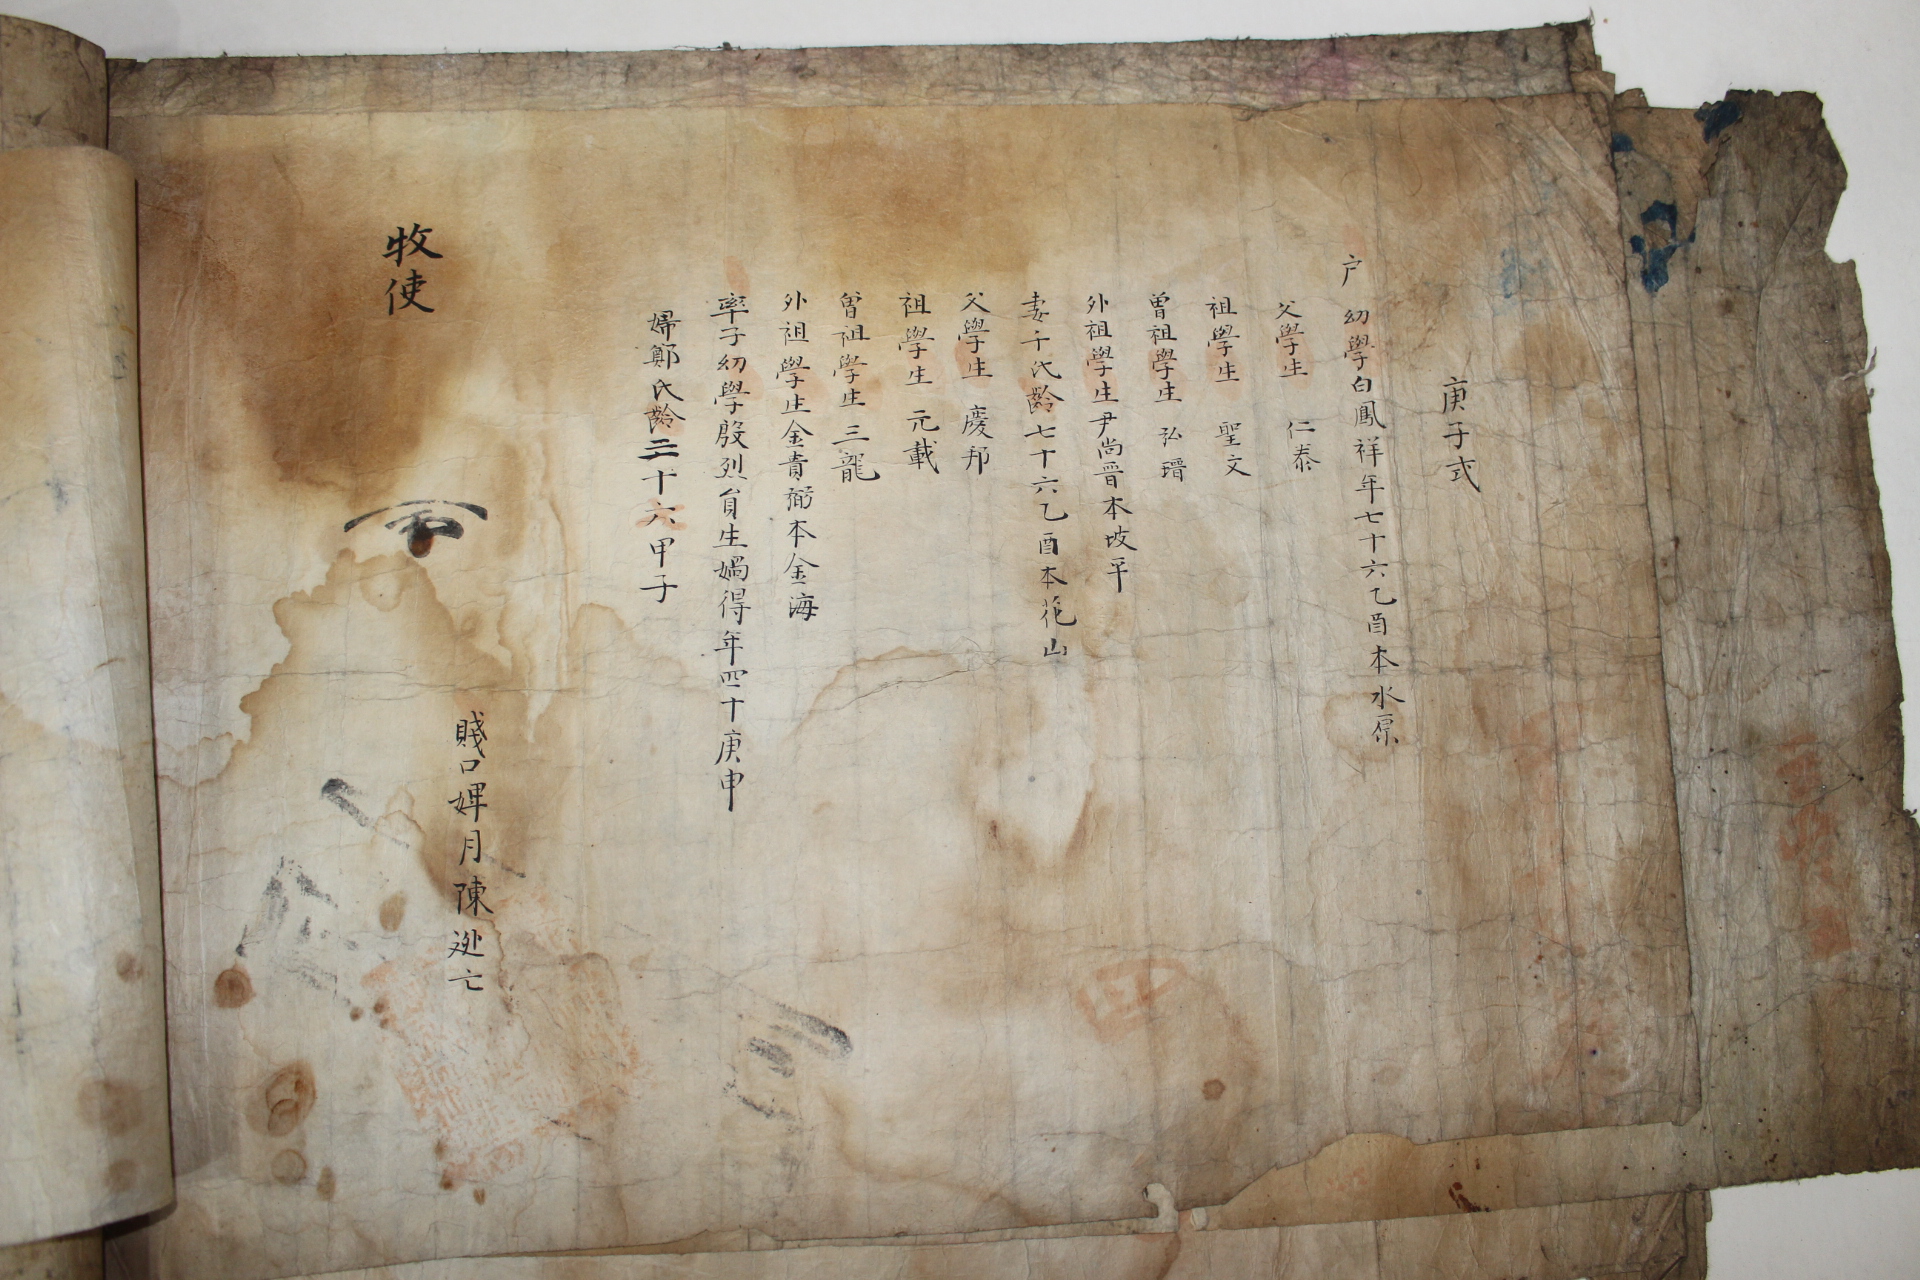 庚子式
戶 幼學白鳳祥年七十六乙酉本水原
父學生 仁泰
祖學生 聖文
曾祖學生 弘瑨
外祖學生尹尚晋本坡平
妻千氏齡七十六乙酉本花山
父學生 慶邦
祖學生 元載
曾祖學生 三龍
外祖學生金貴弼本金海
率子幼學殷烈 生 得年四十庚申
婦鄭氏齡 十六甲子
賤口婢月陳逃亡
牧使